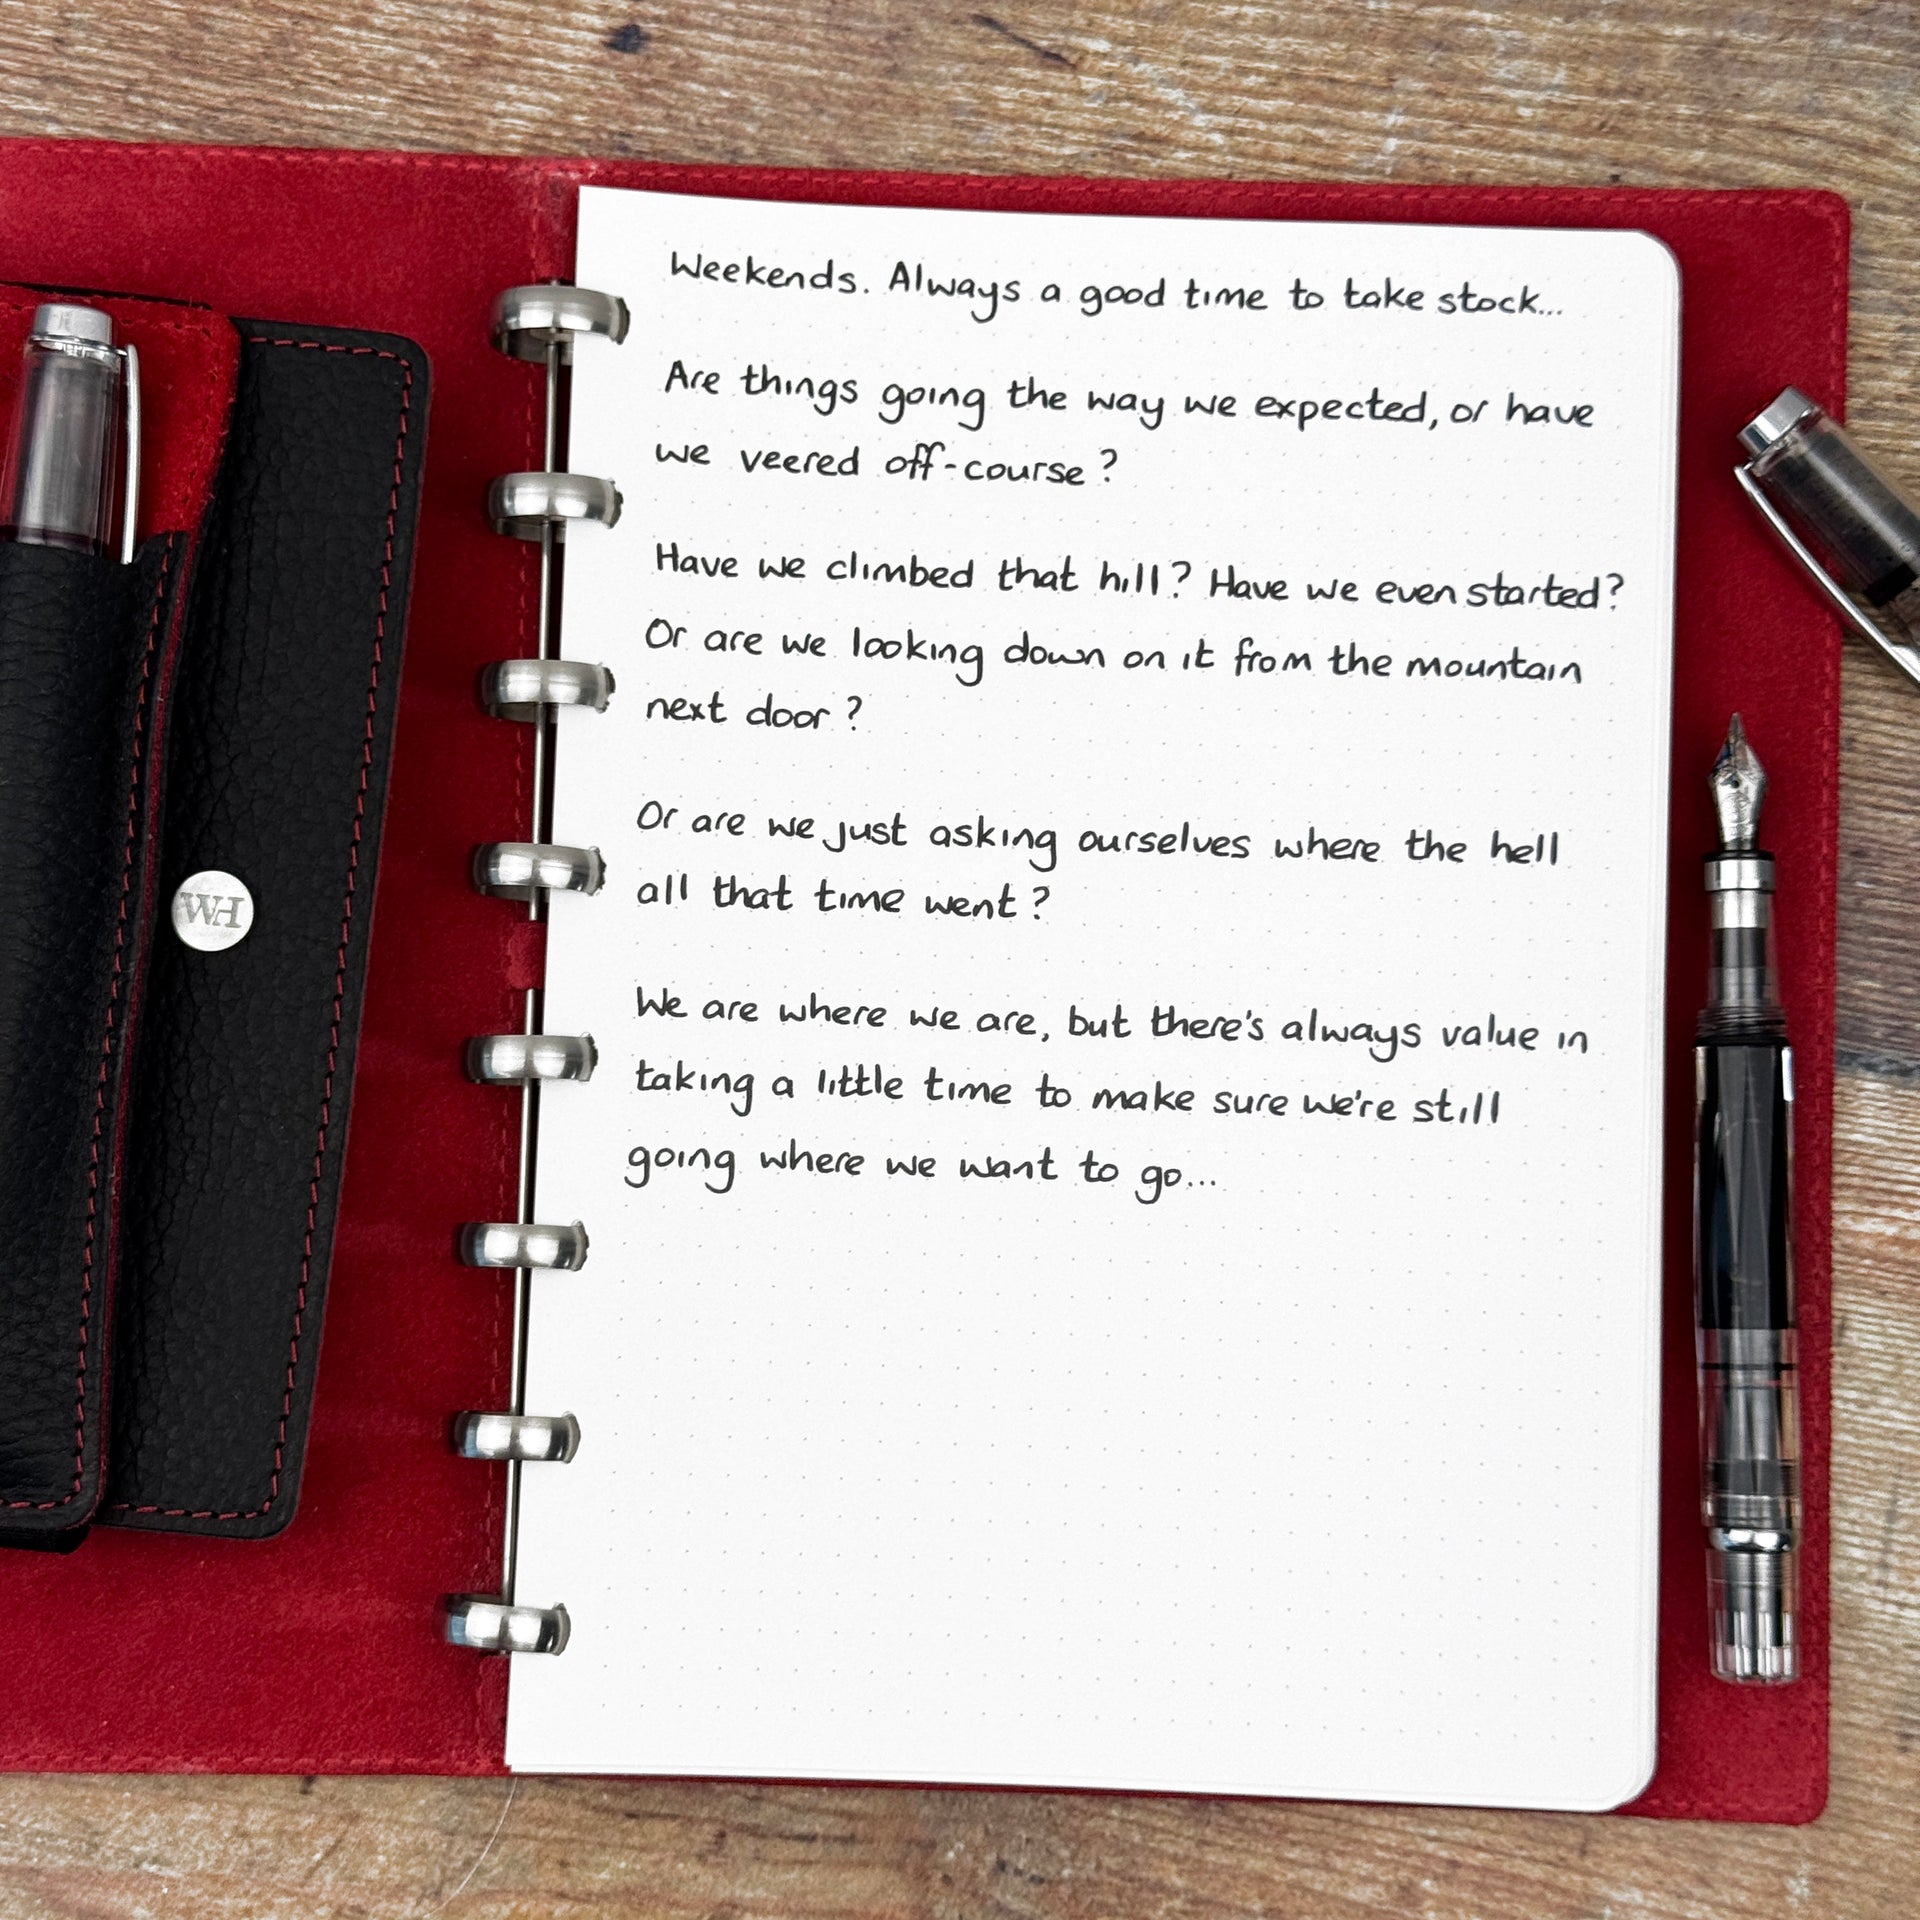 Weekends. Always a good time to take stock...
Are things going the way we expected, or have
we veered off-course?
Have we climbed that hill? Have we even started?
Or are we looking down on it from the mountain
next door?
Or are we just asking ourselves where the hell
all that time went?
We are where we are, but there's always value in
taking a little time to make sure we're still
going where we want to go...
WH